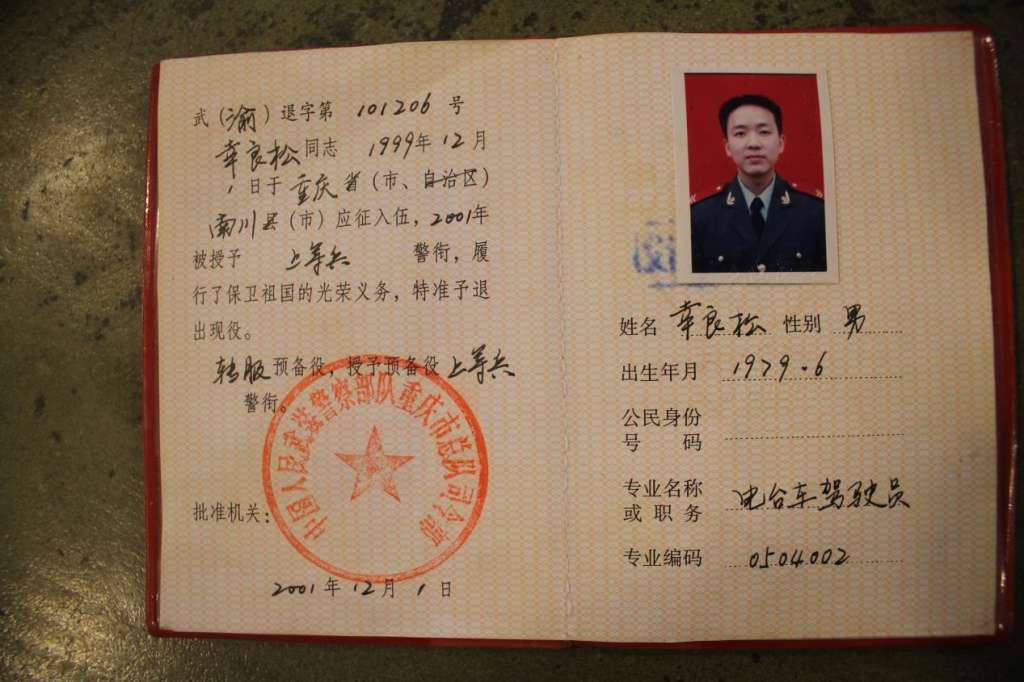 武（渝）退字第 101206 号
幸良松同志 1999年12月
1日于重庆省（市、自治区）
南川县（市）应征入伍，2001年
被授予 上等兵 警衔，履
行了保卫祖国的光荣义务，特准予退
出现役。
转服预备役，授予预备役上等兵
警衔。
中国人民武装警察部队重庆市总队司令部
批准机关：
2001年12月1日
姓名 幸良松 性别 男
出生年月 1979.6
公民身份
号 码
专业名称
或 职 务 电台车驾驶员
专业编码 0504002